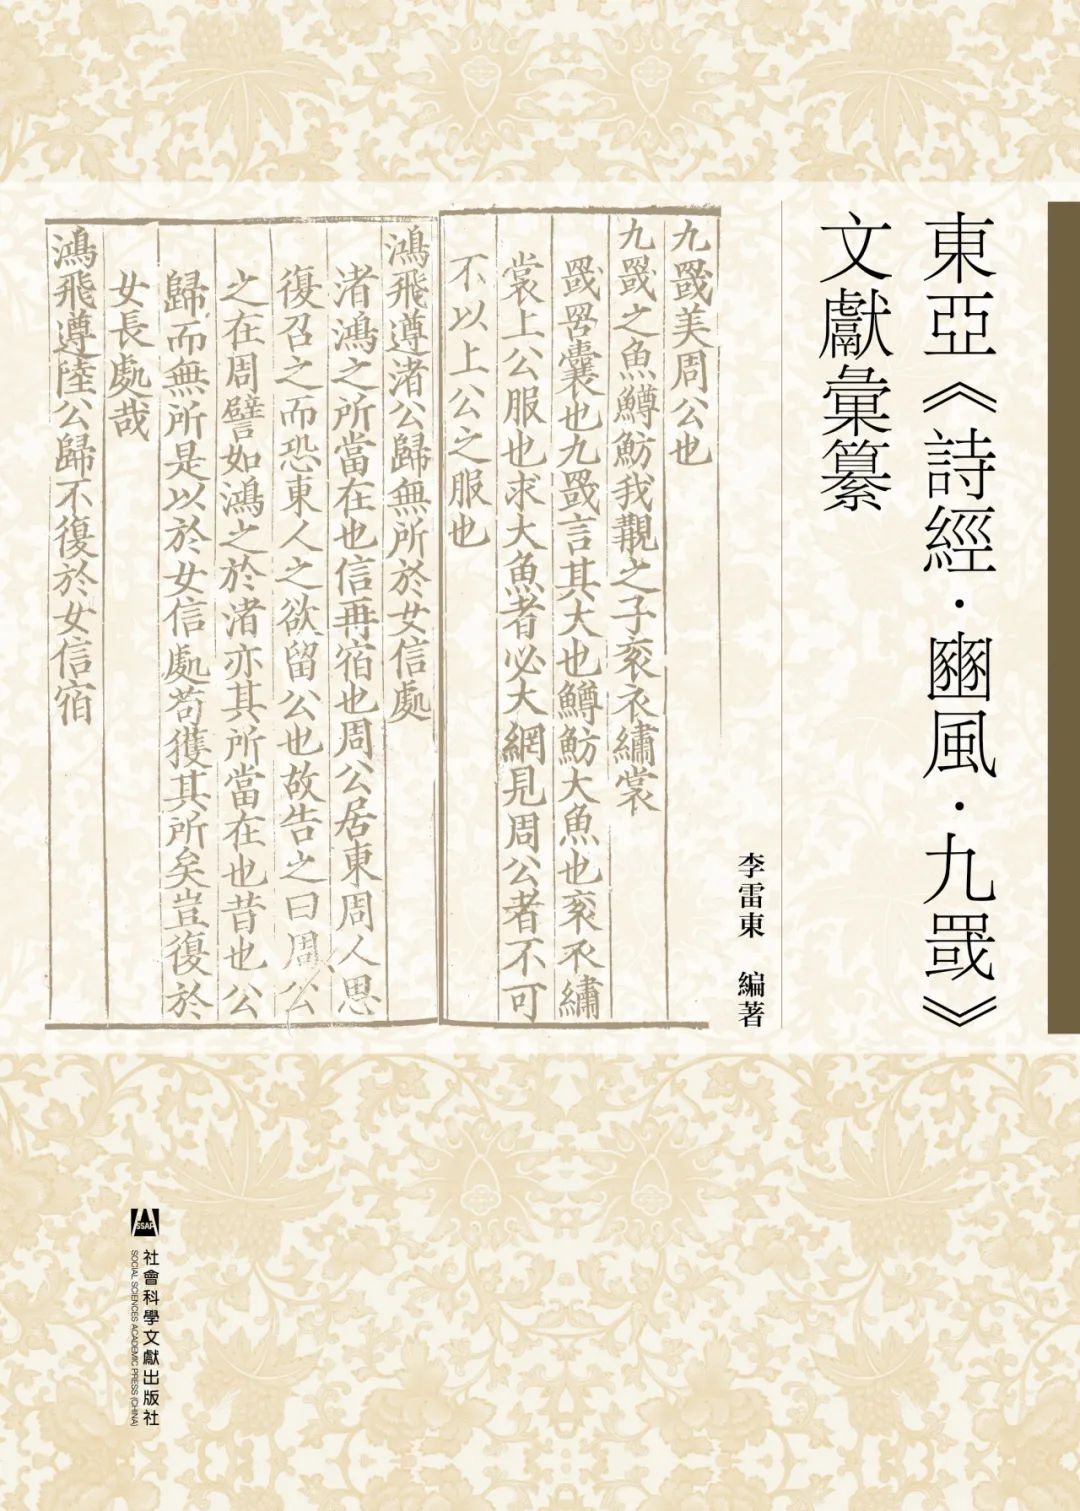 東亞《詩經·豳風·九罭》
文獻彙纂
李雷東 編著
九罭美周公也
九罭之魚鱒魴我覯之子衮衣繡裳
罭罟囊也九罭言其大也鱒魴大魚也衮衣繡
裳上公服也求大魚者必大網見周公者不可
不以上公之服也
鴻飛遵渚公歸無所於女信處
渚鴻之所當在也信再宿也周公居東周人思
復召之而恐東人之欲留公也故告之曰周公
之在周譬如鴻之於渚亦其所當在也昔也公
歸而無所是以於女信處苟獲其所矣豈復於
女長處哉
鴻飛遵陸公歸不復於女信宿
SSAP
社會科學文獻出版社
SOCIAL SCIENCES ACADEMIC PRESS (CHINA)